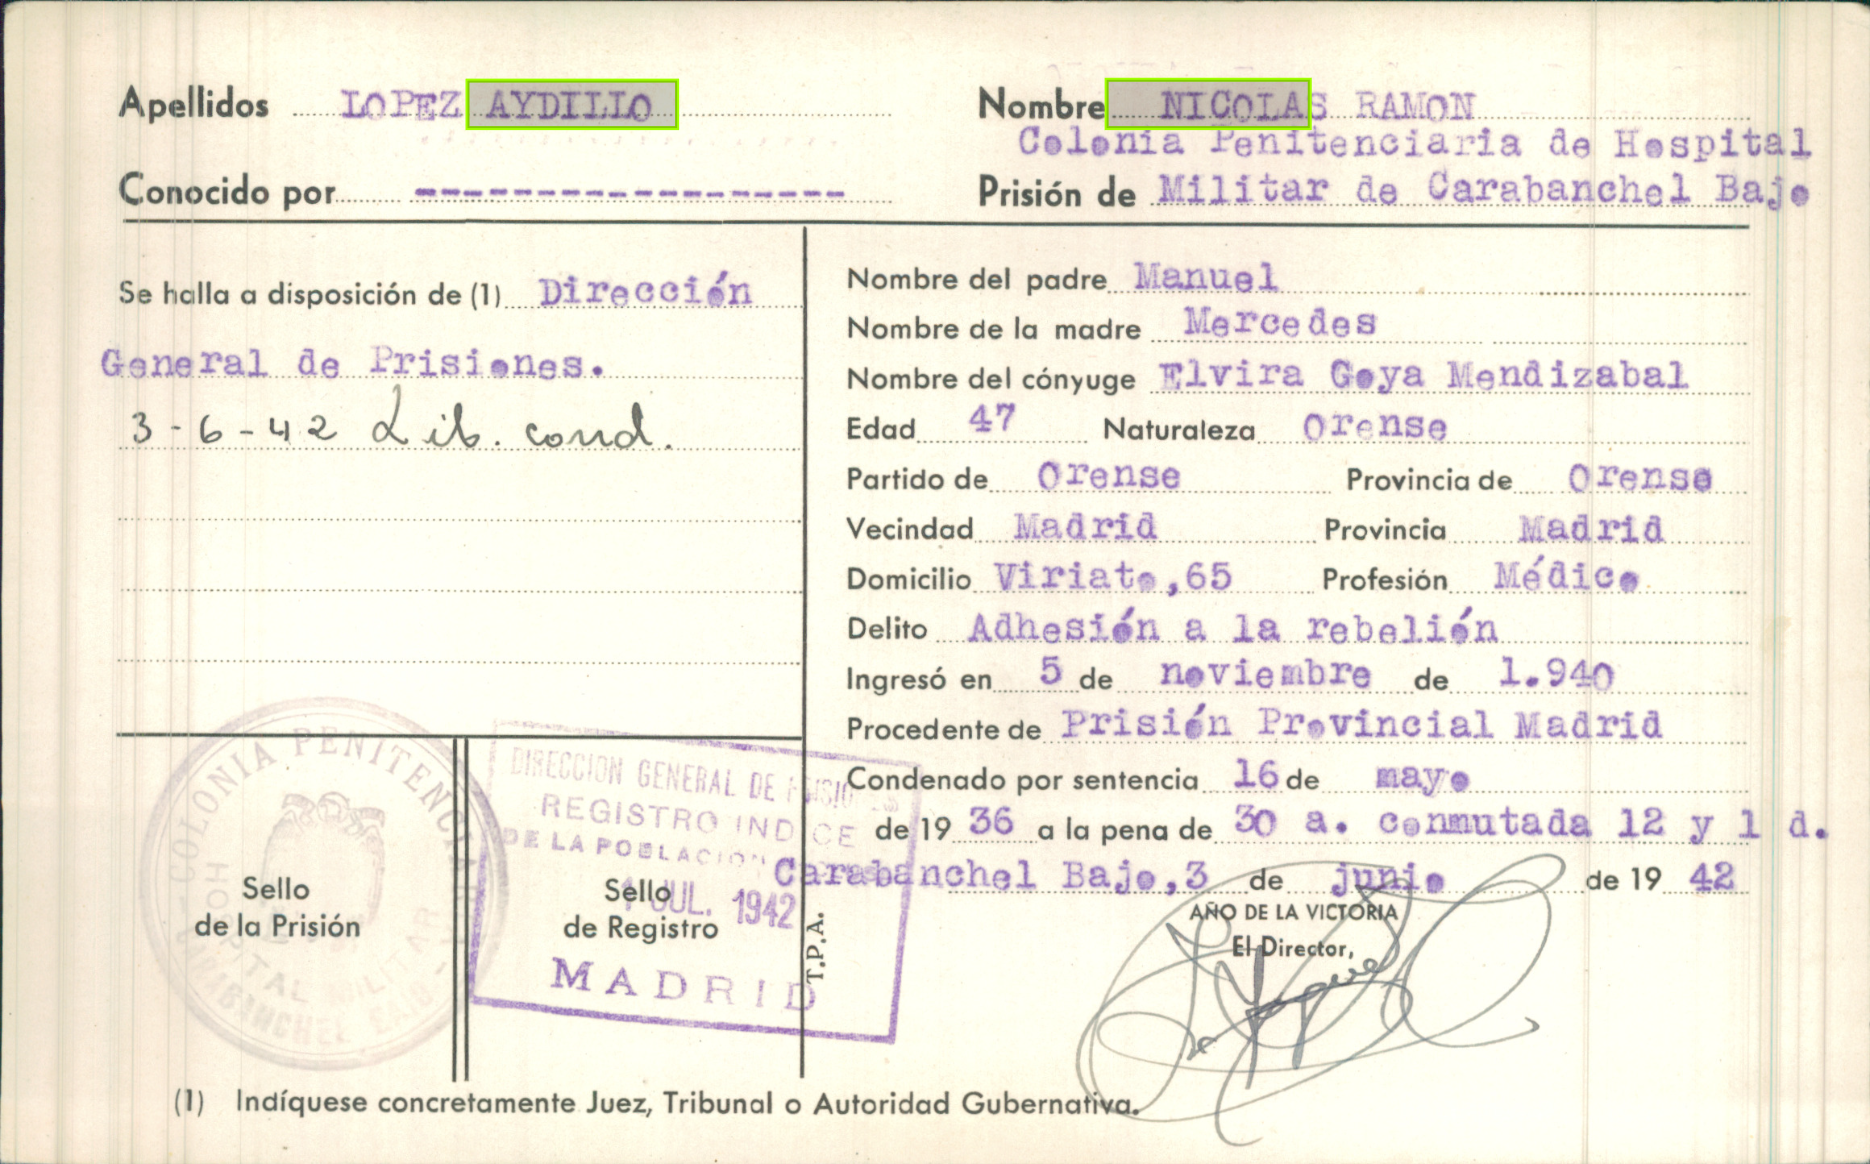 Apellidos LOPEZ AYDILLO
Nombre NICOLAS RAMON
Colonia Penitenciaria de Hospital
Conocido por ------------------
Prisión de Militar de Carabanchel Bajo
Se halla a disposición de (1) Dirección
General de Prisiones.
3-6-42 Lib. cond.
Nombre del padre Manuel
Nombre de la madre Mercedes
Nombre del cónyuge Elvira Goya Mendizabal
Edad 47 Naturaleza Orense
Partido de Orense Provincia de Orense
Vecindad Madrid Provincia Madrid
Domicilio Viriato,65 Profesión Médico
Delito Adhesión a la rebelión
Ingresó en 5 de noviembre de 1.940
Procedente de Prisión Provincial Madrid
Condenado por sentencia 16 de mayo
de 19 36 a la pena de 30 a. conmutada 12 y 1 d.
Carabanchel Bajo,3 de junio de 19 42
AÑO DE LA VICTORIA
El Director,
COLONIA PENITENCIARIA
HOSPITAL MILITAR
CARABANCHEL BAJO
Sello
de la Prisión
DIRECCION GENERAL DE PRISIONES
REGISTRO INDICE
DE LA POBLACION
1 JUL. 1942
MADRID
Sello
de Registro
T.P.A.
(1) Indíquese concretamente Juez, Tribunal o Autoridad Gubernativa.